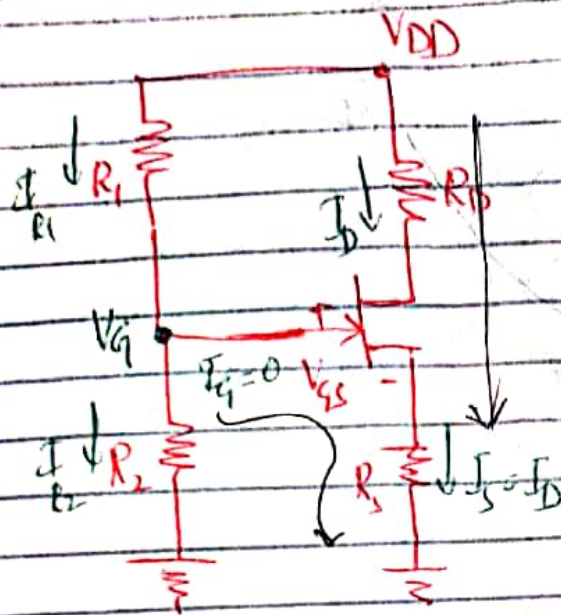 VDD
I_R1
R1
I_D
RD
VG
I_G = 0
+
VGS
-
I_R2
R2
RS
I_S = I_D